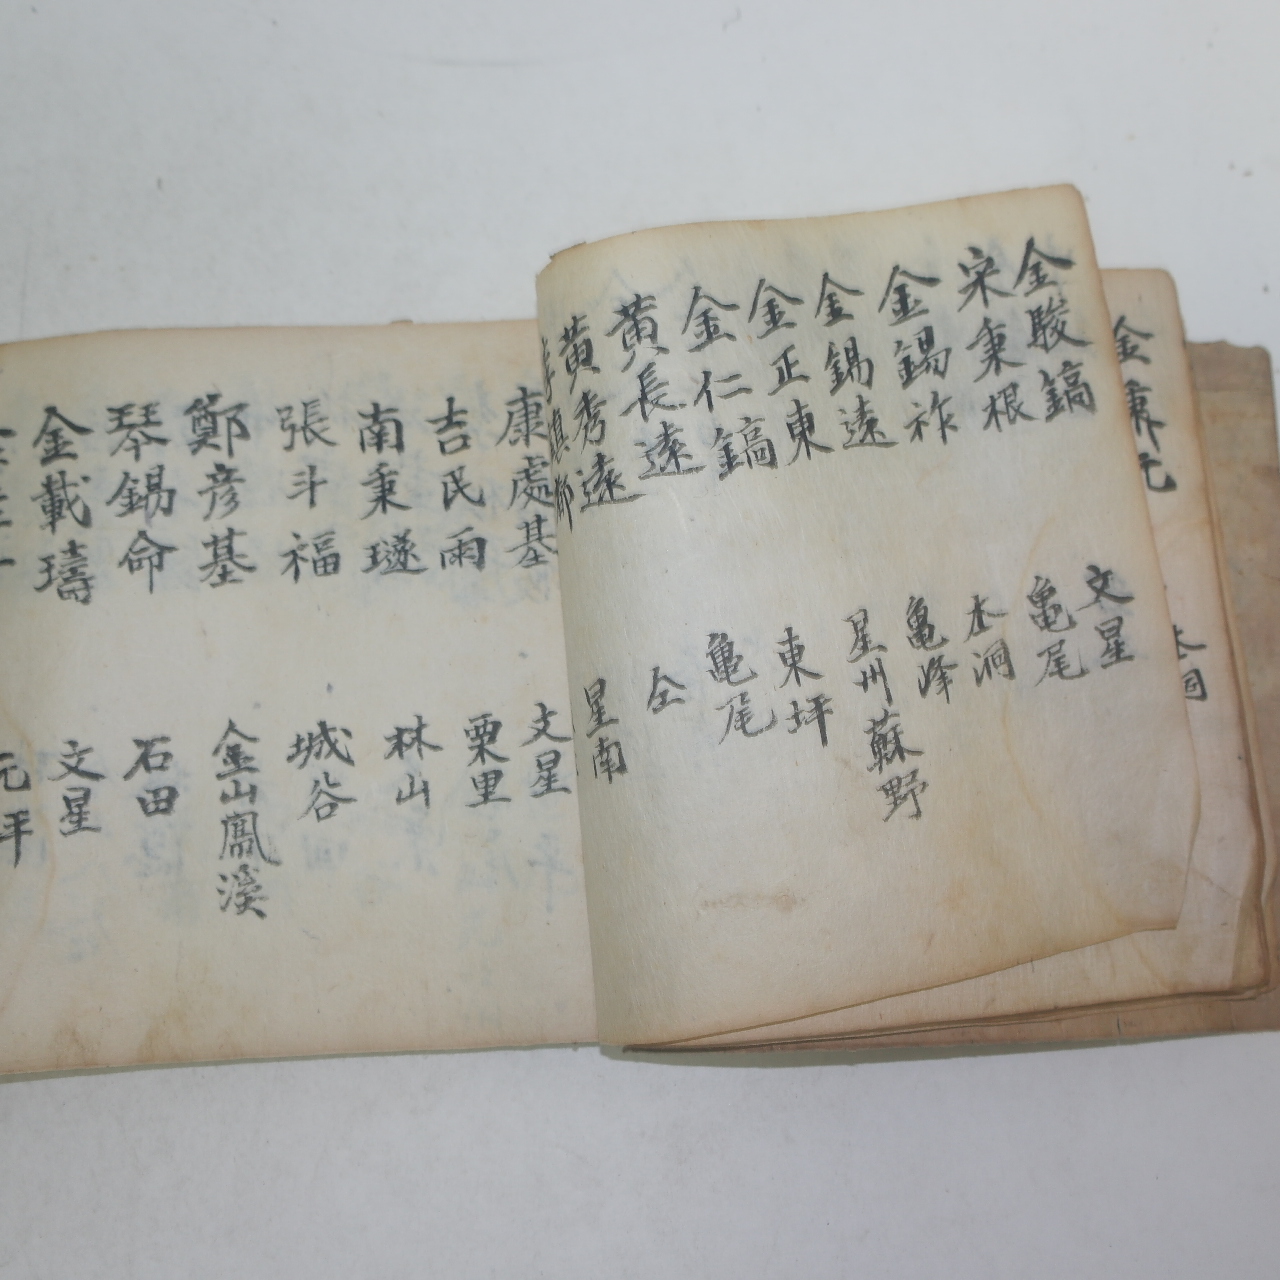 金駿鎬 文星
宋秉根 亀尾
金錫祚 夲洞
金錫遠 亀峰
金正東 星州蘇野
金仁鎬 東坪
黃長遠 亀尾
黃秀遠 仝
星南
康處基 文星
吉民雨 栗里
南秉璲 林山
張斗福 城谷
鄭彦基 金山鳳溪
琴錫命 石田
金載璹 文星
元坪